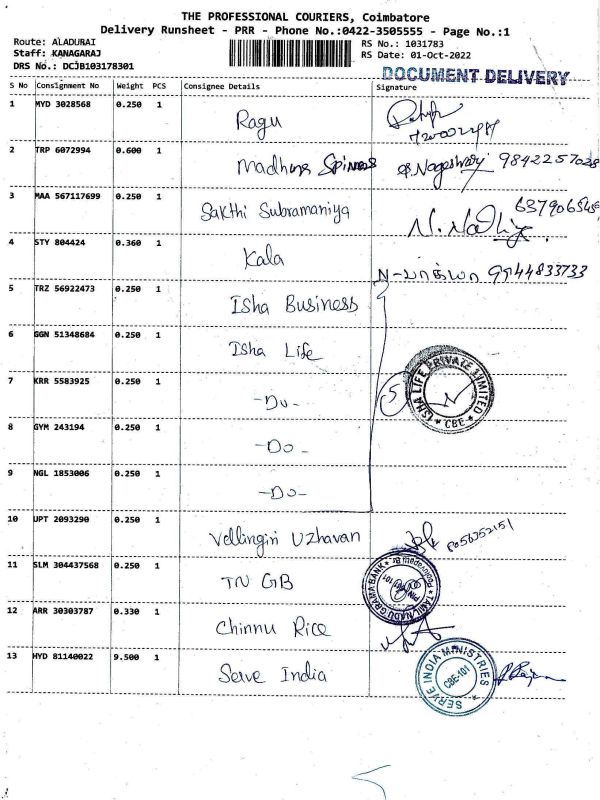 THE PROFESSIONAL COURIERS, Coimbatore
Delivery Runsheet - PRR - Phone No.:0422-3505555 - Page No.:1
Route: ALADURAI
Staff: KANAGARAJ
DRS No.: DCJB103178301
RS No.: 1031783
RS Date: 01-Oct-2022
DOCUMENT DELIVERY
S No Consignment No Weight PCS Consignee Details Signature
1 MYD 3028568 0.250 1 Ragu
2 TRP 6072994 0.600 1 Madhura Spinners S. Nageswary 9842257028
3 MAA 567117699 0.250 1 Sakthi Subramaniya
4 STY 804424 0.360 1 Kala N-பாக்யா 9944833733
5 TRZ 56922473 0.250 1 Isha Business
6 GGN 51348684 0.250 1 Isha Life
7 KRR 5583925 0.250 1 -Do- 5
ISHA LIFE PRIVATE LIMITED * CBE *
8 GYM 243194 0.250 1 -Do-
9 NGL 1853006 0.250 1 -Do-
10 UPT 2093290 0.250 1 Vellingiri Uzhavan 8056352151
11 SLM 304437568 0.250 1 TN GB
TAMIL NADU GRAMA BANK
12 ARR 30303787 0.330 1 Chinnu Rice
13 HYD 81140022 9.500 1 Serve India
SERVE INDIA MINISTRIES CBE-101